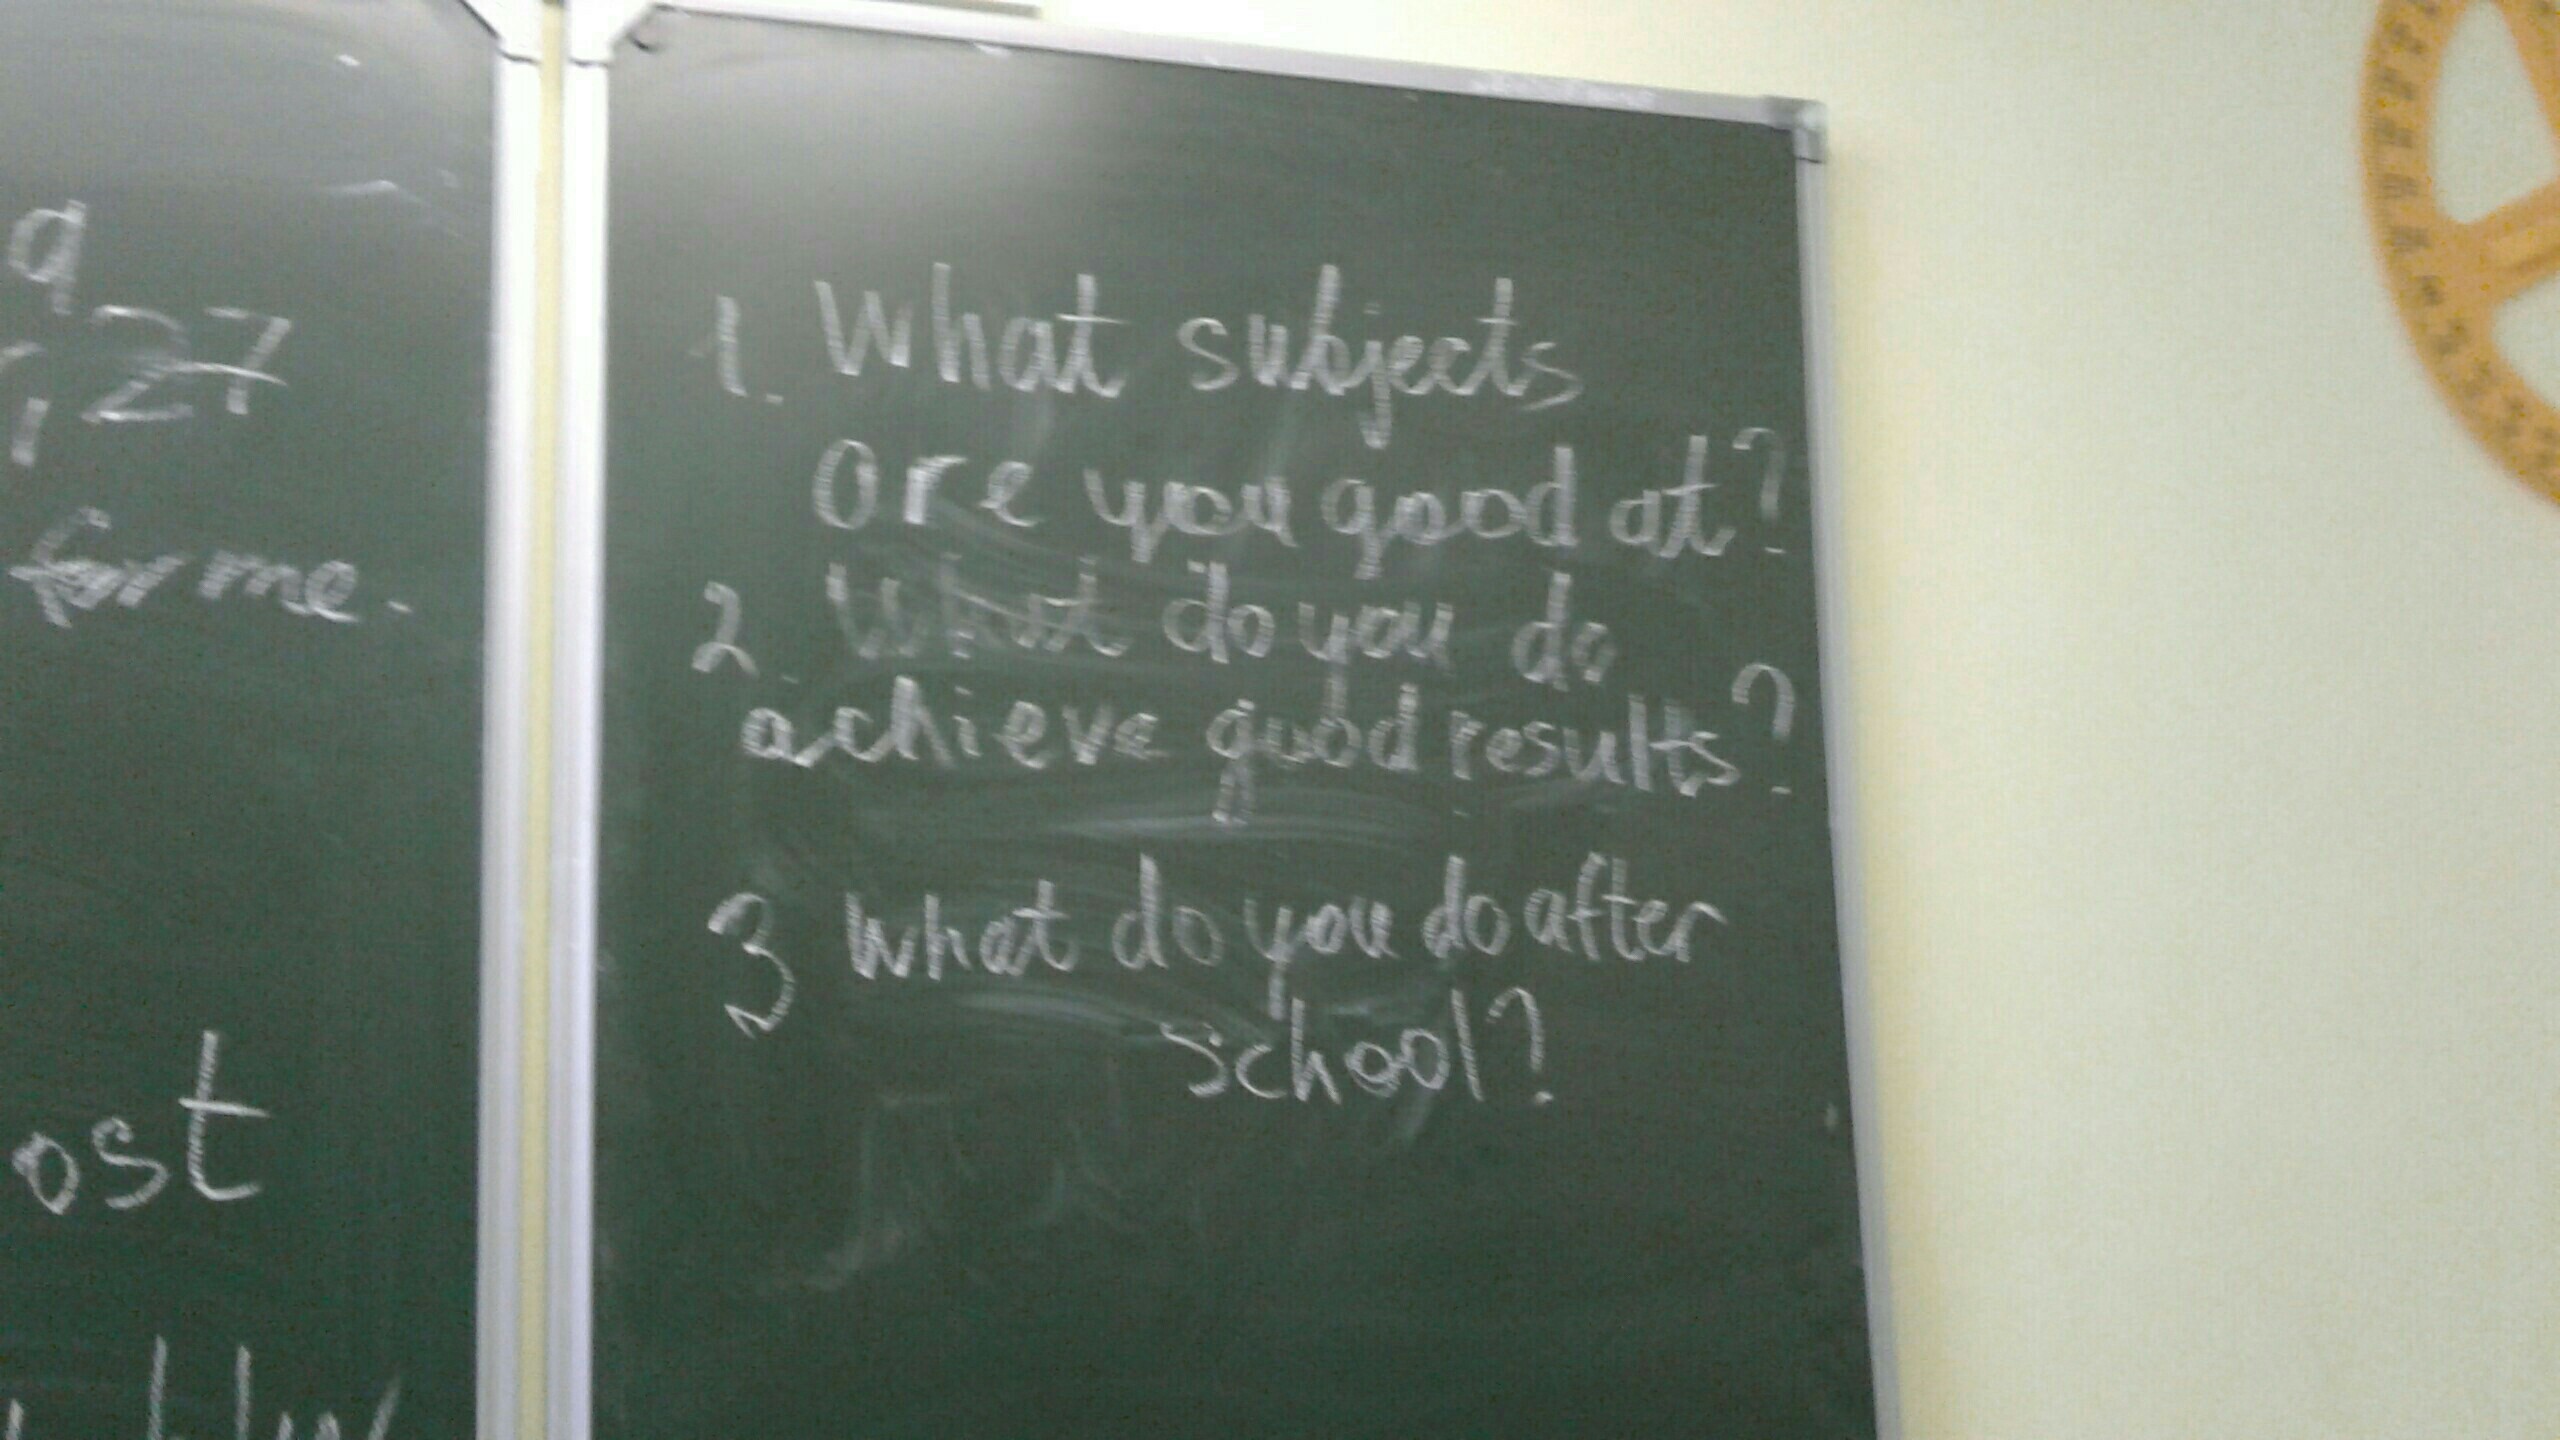 27
for me.
ost
1. What subjects
are you good at?
2. What do you do
achieve good results?
3 What do you do after
school?